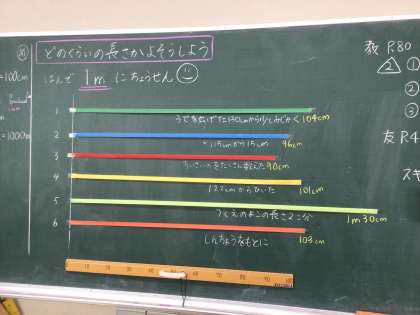 め
どのくらいの長さかよそうしよう
はんで 1m にちょうせん
=100cm
1m
=1000m
1
うでを広げた130cmから少しみじかく 104cm
2
115cmから15cm 96cm
3
ちいさい人をたくさん数えた 90cm
4
122cmからひいた 101cm
5
つくえのよこの長さ2こ分 1m30cm
6
しんちょうをもとに 103cm
0 10 20 30 40 50 60 70 80 90
教 P.80
2 ①
②
③
友 P.4
スキ